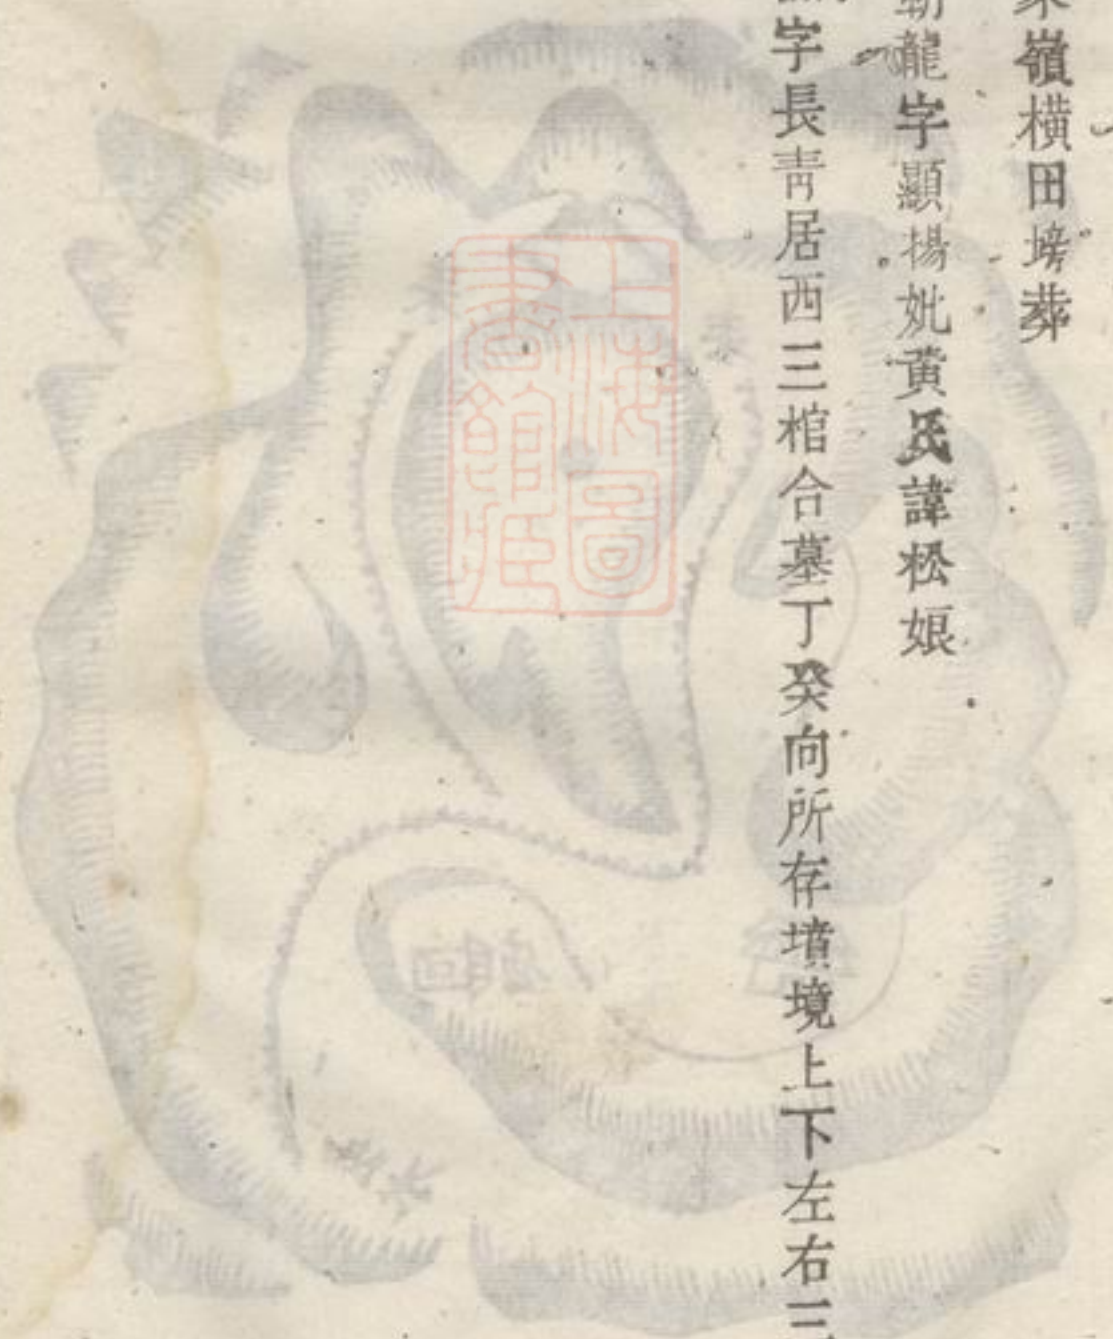 嶺橫田塝葬
龍字顯揚妣黃氏諱松娘
字長靑居西三棺合墓丁癸向所存墳境上下左右三
上海圖
書館藏